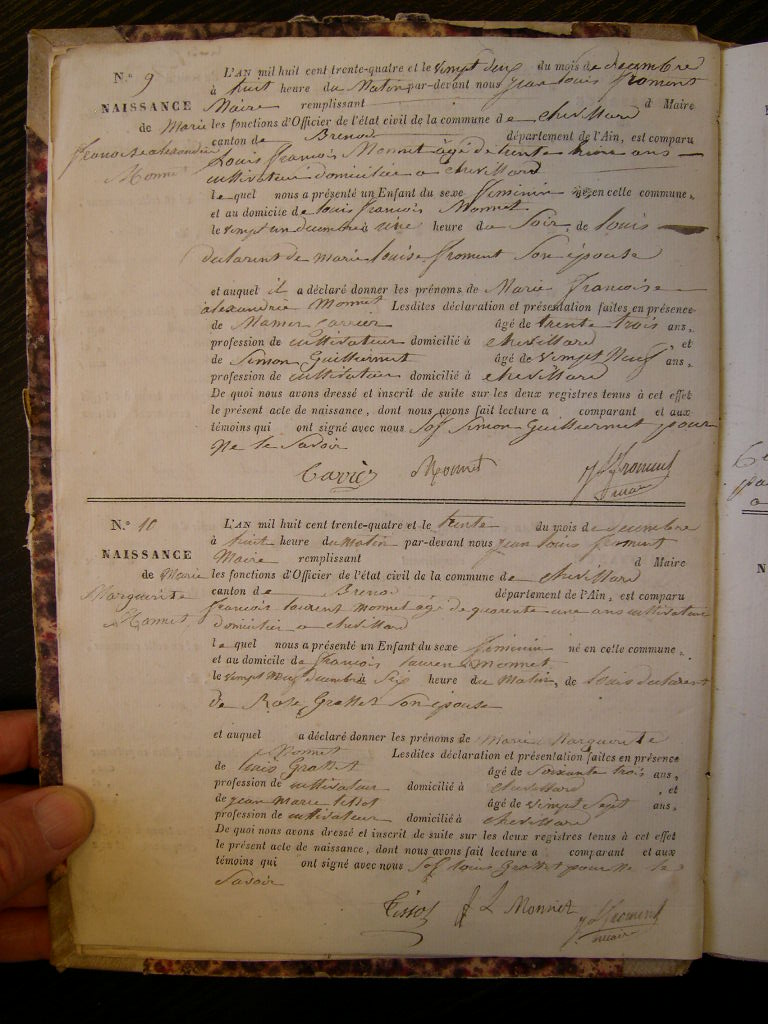 N.º 9
NAISSANCE
de Marie
françoise alexandrie
Monnet
L'AN mil huit cent trente-quatre et le vingt deux du mois de decembre
à huit heure du Matin par-devant nous jean louis froment
Maire remplissant d Maire
les fonctions d'Officier de l'état civil de la commune de chevillard
canton de Brenod département de l'Ain, est comparu
Louis françois Monnet âgé de trente ans
cultivateur domicilié a chevillard
lequel nous a présenté un Enfant du sexe féminin né en cette commune,
et au domicile de louis françois Monnet
le vingt un decembre à une heure du Soir, de louis
declarent de marie louise froment Son épouse
et auquel il a déclaré donner les prénoms de Marie francoise
alexandrie Monnet Lesdites déclaration et présentation faites en présence
de Mamer carrier âgé de trente trois ans,
profession de cultivateur domicilié à chevillard , et
de Simon Guilliermet âgé de vingt Neuf ans,
profession de cultivateur domicilié à chevillard
De quoi nous avons dressé et inscrit de suite sur les deux registres tenus à cet effet
le présent acte de naissance, dont nous avons fait lecture a comparant et aux
témoins qui ont signé avec nous Sof Simon Guilliermet pour
Ne le Savoir
Carrier Monnet J L froment
maire
N.º 10
NAISSANCE
de Marie
Marguerite
Monnet
L'AN mil huit cent trente-quatre et le trente du mois de decembre
à huit heure du Matin par-devant nous jean louis froment
Maire remplissant d Maire
les fonctions d'Officier de l'état civil de la commune de chevillard
canton de Brenod département de l'Ain, est comparu
francois laurent monnet âgé de quarente une ans cultivateur
domicilier a chevillard
lequel nous a présenté un Enfant du sexe féminin né en cette commune,
et au domicile de françois laurent Monnet
le vingt Neuf decembre à Six heure du Matin, de louis declarent
de Rose Grattet Son épouse
et auquel a déclaré donner les prénoms de Marie Marguerite
Monnet Lesdites déclaration et présentation faites en présence
de louis Grattet âgé de Soixante trois ans,
profession de cultivateur domicilié à chevillard , et
de jean Marie tissot âgé de vingt Sept ans,
profession de cultivateur domicilié à chevillard
De quoi nous avons dressé et inscrit de suite sur les deux registres tenus à cet effet
le présent acte de naissance, dont nous avons fait lecture a comparant et aux
témoins qui ont signé avec nous Sof louis Grattet pour Ne le
Savoir
Tissot f L Monnet J L froment
maire